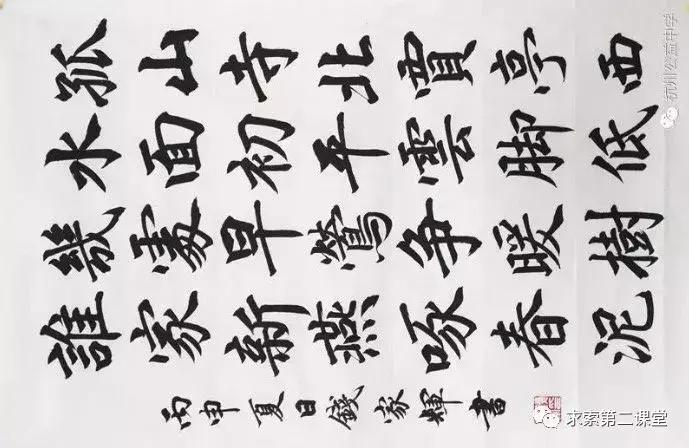 孤山寺北賈亭西
水面初平雲脚低
幾處早鶯争暖樹
誰家新燕啄春泥
丙申夏日錢家輝書
杭州公益中学
求索第二课堂